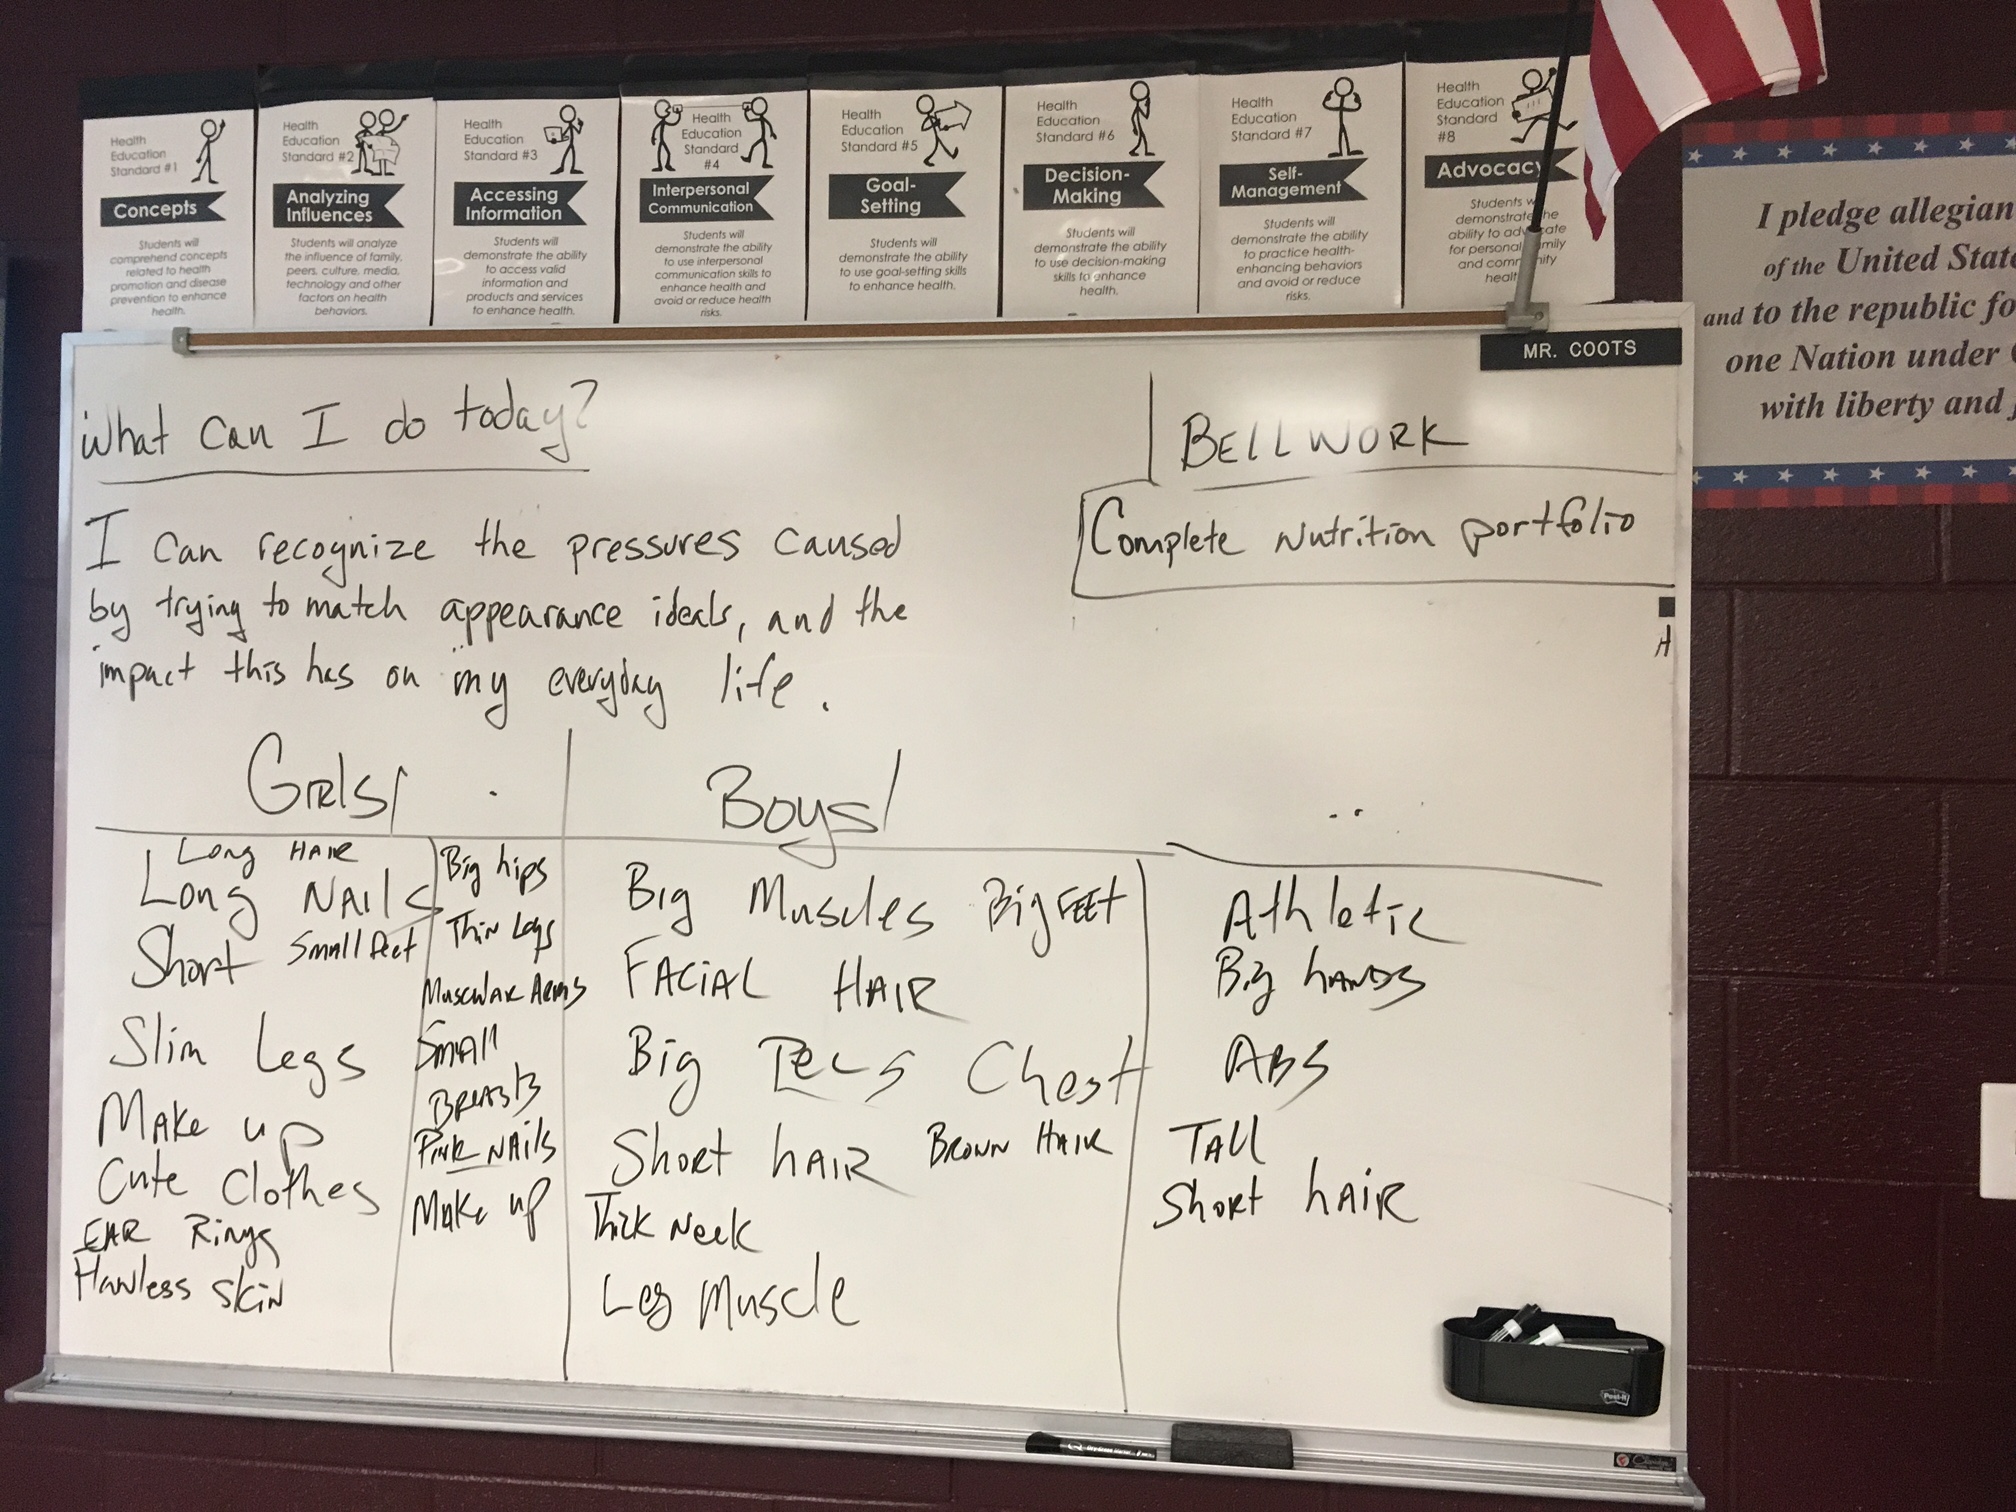 Health
Education
Standard #1
Concepts
Students will
comprehend concepts
related to health
promotion and disease
prevention to enhance
health.
Health
Education
Standard #2
Analyzing
Influences
Students will analyze
the influence of family,
peers, culture, media,
technology and other
factors on health
behaviors.
Health
Education
Standard #3
Accessing
Information
Students will
demonstrate the ability
to access valid
information and
products and services
to enhance health.
Health
Education
Standard
#4
Interpersonal
Communication
Students will
demonstrate the ability
to use interpersonal
communication skills to
enhance health and
avoid or reduce health
risks.
Health
Education
Standard #5
Goal-
Setting
Students will
demonstrate the ability
to use goal-setting skills
to enhance health.
Health
Education
Standard #6
Decision-
Making
Students will
demonstrate the ability
to use decision-making
skills to enhance
health.
Health
Education
Standard #7
Self-
Management
Students will
demonstrate the ability
to practice health-
enhancing behaviors
and avoid or reduce
risks.
Health
Education
Standard
#8
Advocacy
Students
demonstrate
ability to
for personal
and
I pledge
of the United
and to the republic
one Nation under
with liberty and
MR. COOTS
What can I do today?
I can recognize the pressures caused
by trying to match appearance ideals, and the
impact this has on my everyday life.
BELLWORK
Complete Nutrition portfolio
H
Girls/
Long HAIR
Long NAILS
Short Small feet
Slim legs
Make up
Cute clothes
EAR Rings
skin
Big hips
Thin legs
Muscular Arms
Small
BREASTS
Pink NAils
Make up
Boys/
Big Muscles Big FEET
FACIAL HAIR
Big Pecs Chest
Short hAIR BROWN HAIR
Thick Neck
Leg Muscle
Athletic
Big hANDS
ABS
TAll
Short hAIR
Post-it